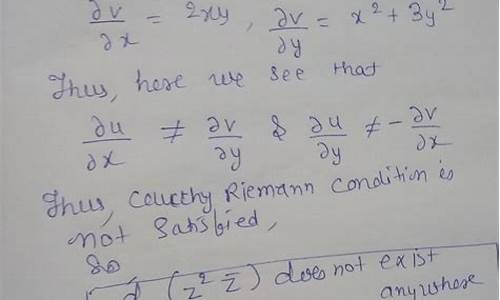 ∂v/∂x = 2xy, ∂v/∂y = x² + 3y²
Thus, here we see that
∂u/∂x ≠ ∂v/∂y & ∂u/∂y ≠ -∂v/∂x
Thus, Caucthy Riemann Condition is
not Satisfied,
So
d (z² z̄) does not exist
anywhere